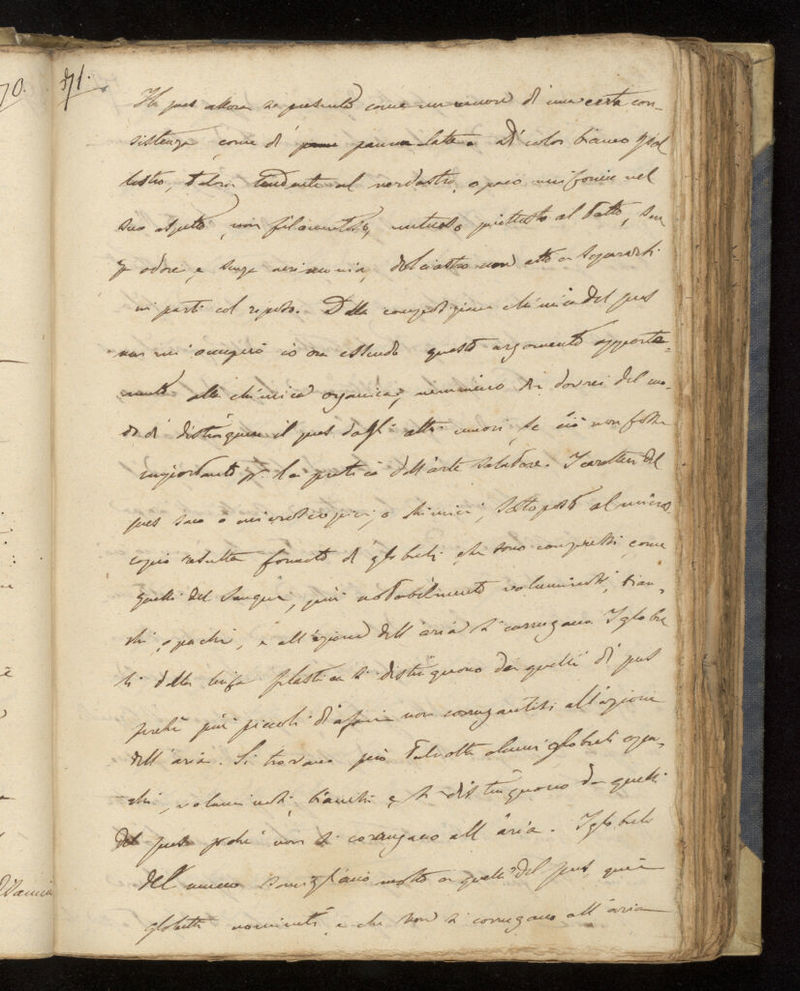 70.
71.
Il pus allora si presenta come un umore di una certa con-
sistenza, come di panna latte. Di color bianco gial
lastro, talora tendente al verdastro, opaco uniforme nel
suo aspetto, non filamentoso, untuoso piuttosto al tatto, sen
za odore, e senza acrimonia, del resto non atto a separarsi
in parti col riposo. Della composizione chimica del pus
non mi occuperò io ora essendo questo argomento apparte-
nente alla chimica organica, nemmeno di dovrei del mo-
do di distinguere il pus dagli altri umori, se ciò non fosse
importante pr la pratica dell'arte salutare. I caratteri del
pus sono o microscopici, o chimici, sottoposto al micros
copio risulta formato di globuli che sono compressi come
quelli del sangue, più notabilmente voluminosi, bian,
chi, opachi, e all'azione dell'aria si corrugano. I globu
li della linfa plastica si distinguono da quelli di pus
perchè più piccoli, non corrugantisi all'azione
dell'aria. Si trovano però talvolta alcuni globuli opa,
chi, voluminosi, bianchi, e si distinguono da quelli
del pus perchè non si corrugano all'aria. I globuli
del muco somigliano molto a quelli del pus,
globetti nominati, e che non si corrugano all'aria